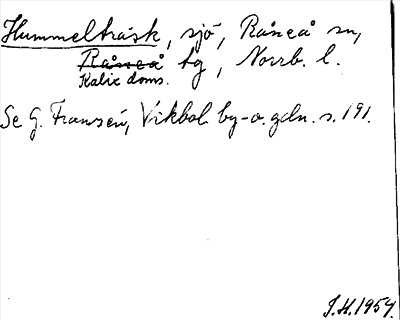 Hummelträsk, sjö, Råneå sn,
Råneå tg, Norrb. l.
Kalix doms.
Se G. Franzén, Vikbol. by-o. gdn. s. 191.
J.H. 1954.